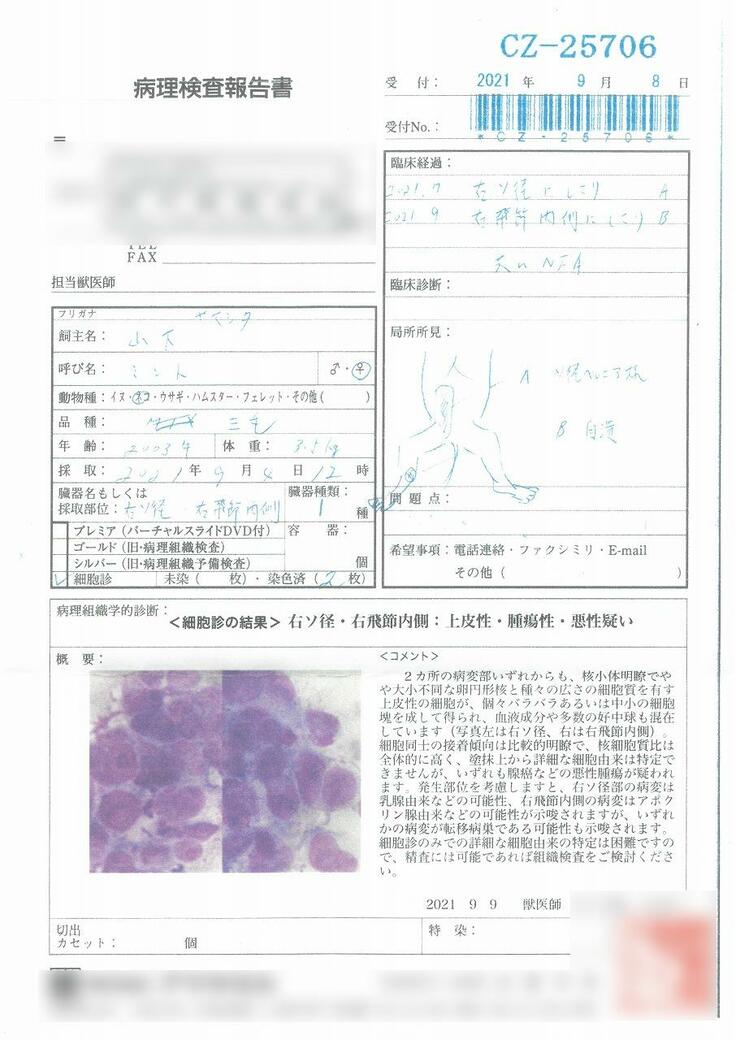 CZ-25706
病理検査報告書
受 付： 2021 年 9 月 8 日
受付No.：
*CZ-25706*
TEL
FAX
担当獣医師
臨床経過：
2021.7 右ソ径にしこり A
2021 9 右飛節内側にしこり B
臨床診断：
フリガナ ヤマシタ
飼主名： 山下
呼び名： ミント ♂・♀
動物種：イヌ・ネコ・ウサギ・ハムスター・フェレット・その他( )
品 種： 三毛
年 齢： 2003年 体 重： 3.5kg
採 取： 2021年 9 月 4 日 12 時
臓器名もしくは
採取部位：右ソ径・右飛節内側
臓器種類：
1 種
プレミア（バーチャルスライドDVD付）
ゴールド（旧・病理組織検査）
シルバー（旧・病理組織予備検査）
細胞診 未染（ 枚）・染色済（2枚）
容 器：
個
局所所見：
A
B 自潰
問題点：
希望事項：電話連絡・ファクシミリ・E-mail
その他（ ）
病理組織学的診断：
＜細胞診の結果＞右ソ径・右飛節内側：上皮性・腫瘍性・悪性疑い
概 要：
＜コメント＞
２カ所の病変部いずれからも、核小体明瞭でや
や大小不同な卵円形核と種々の広さの細胞質を有す
上皮性の細胞が、個々バラバラあるいは中小の細胞
塊を成して得られ、血液成分や多数の好中球も混在
しています（写真左は右ソ径、右は右飛節内側）。
細胞同士の接着傾向は比較的明瞭で、核細胞質比は
全体的に高く、塗抹上から詳細な細胞由来は特定で
きませんが、いずれも腺癌などの悪性腫瘍が疑われ
ます。発生部位を考慮しますと、右ソ径部の病変は
乳腺由来などの可能性、右飛節内側の病変はアポク
リン腺由来などの可能性が示唆されますが、いずれ
かの病変が転移病巣である可能性も示唆されます。
細胞診のみでの詳細な細胞由来の特定は困難ですの
で、精査には可能であれば組織検査をご検討くださ
い。
2021 9 9 獣医師
切出
カセット： 個
特 染：